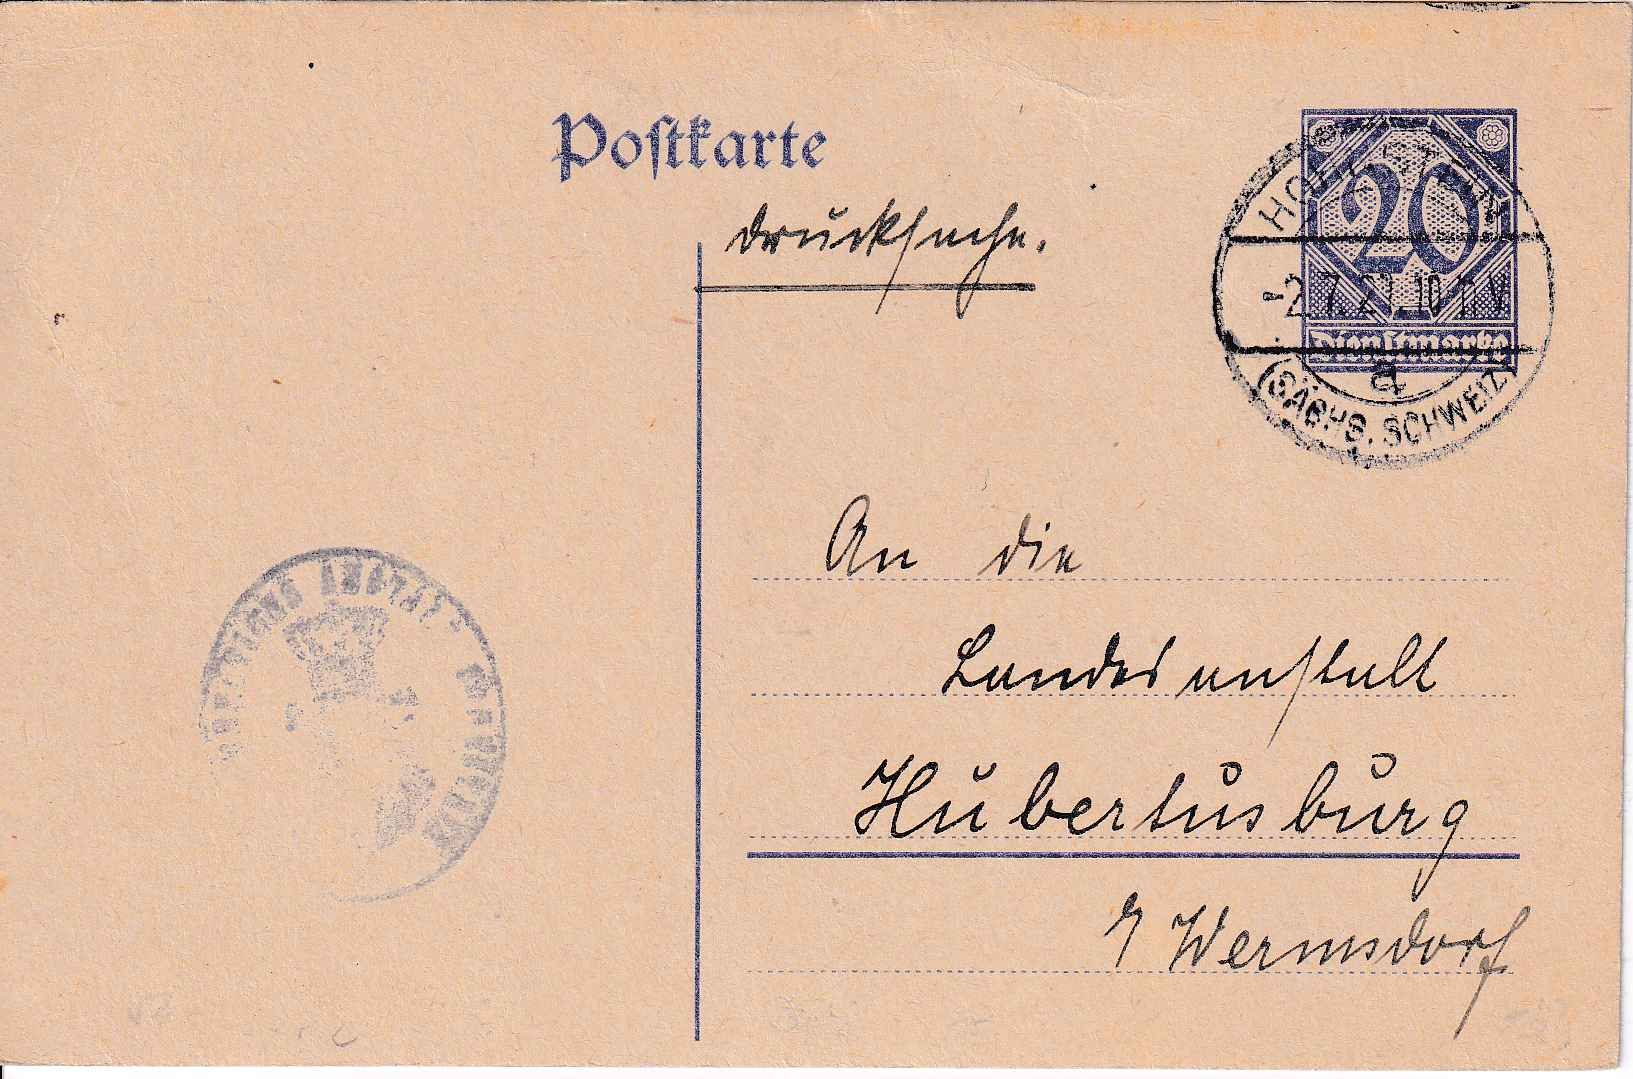 Postkarte
Drucksache.
20
Dienstmarke
HOHNSTEIN
-2.7.21.10-11V
a
(SÄCHS. SCHWEIZ)
An die
Landesanstalt
Hubertusburg
Wermsdorf